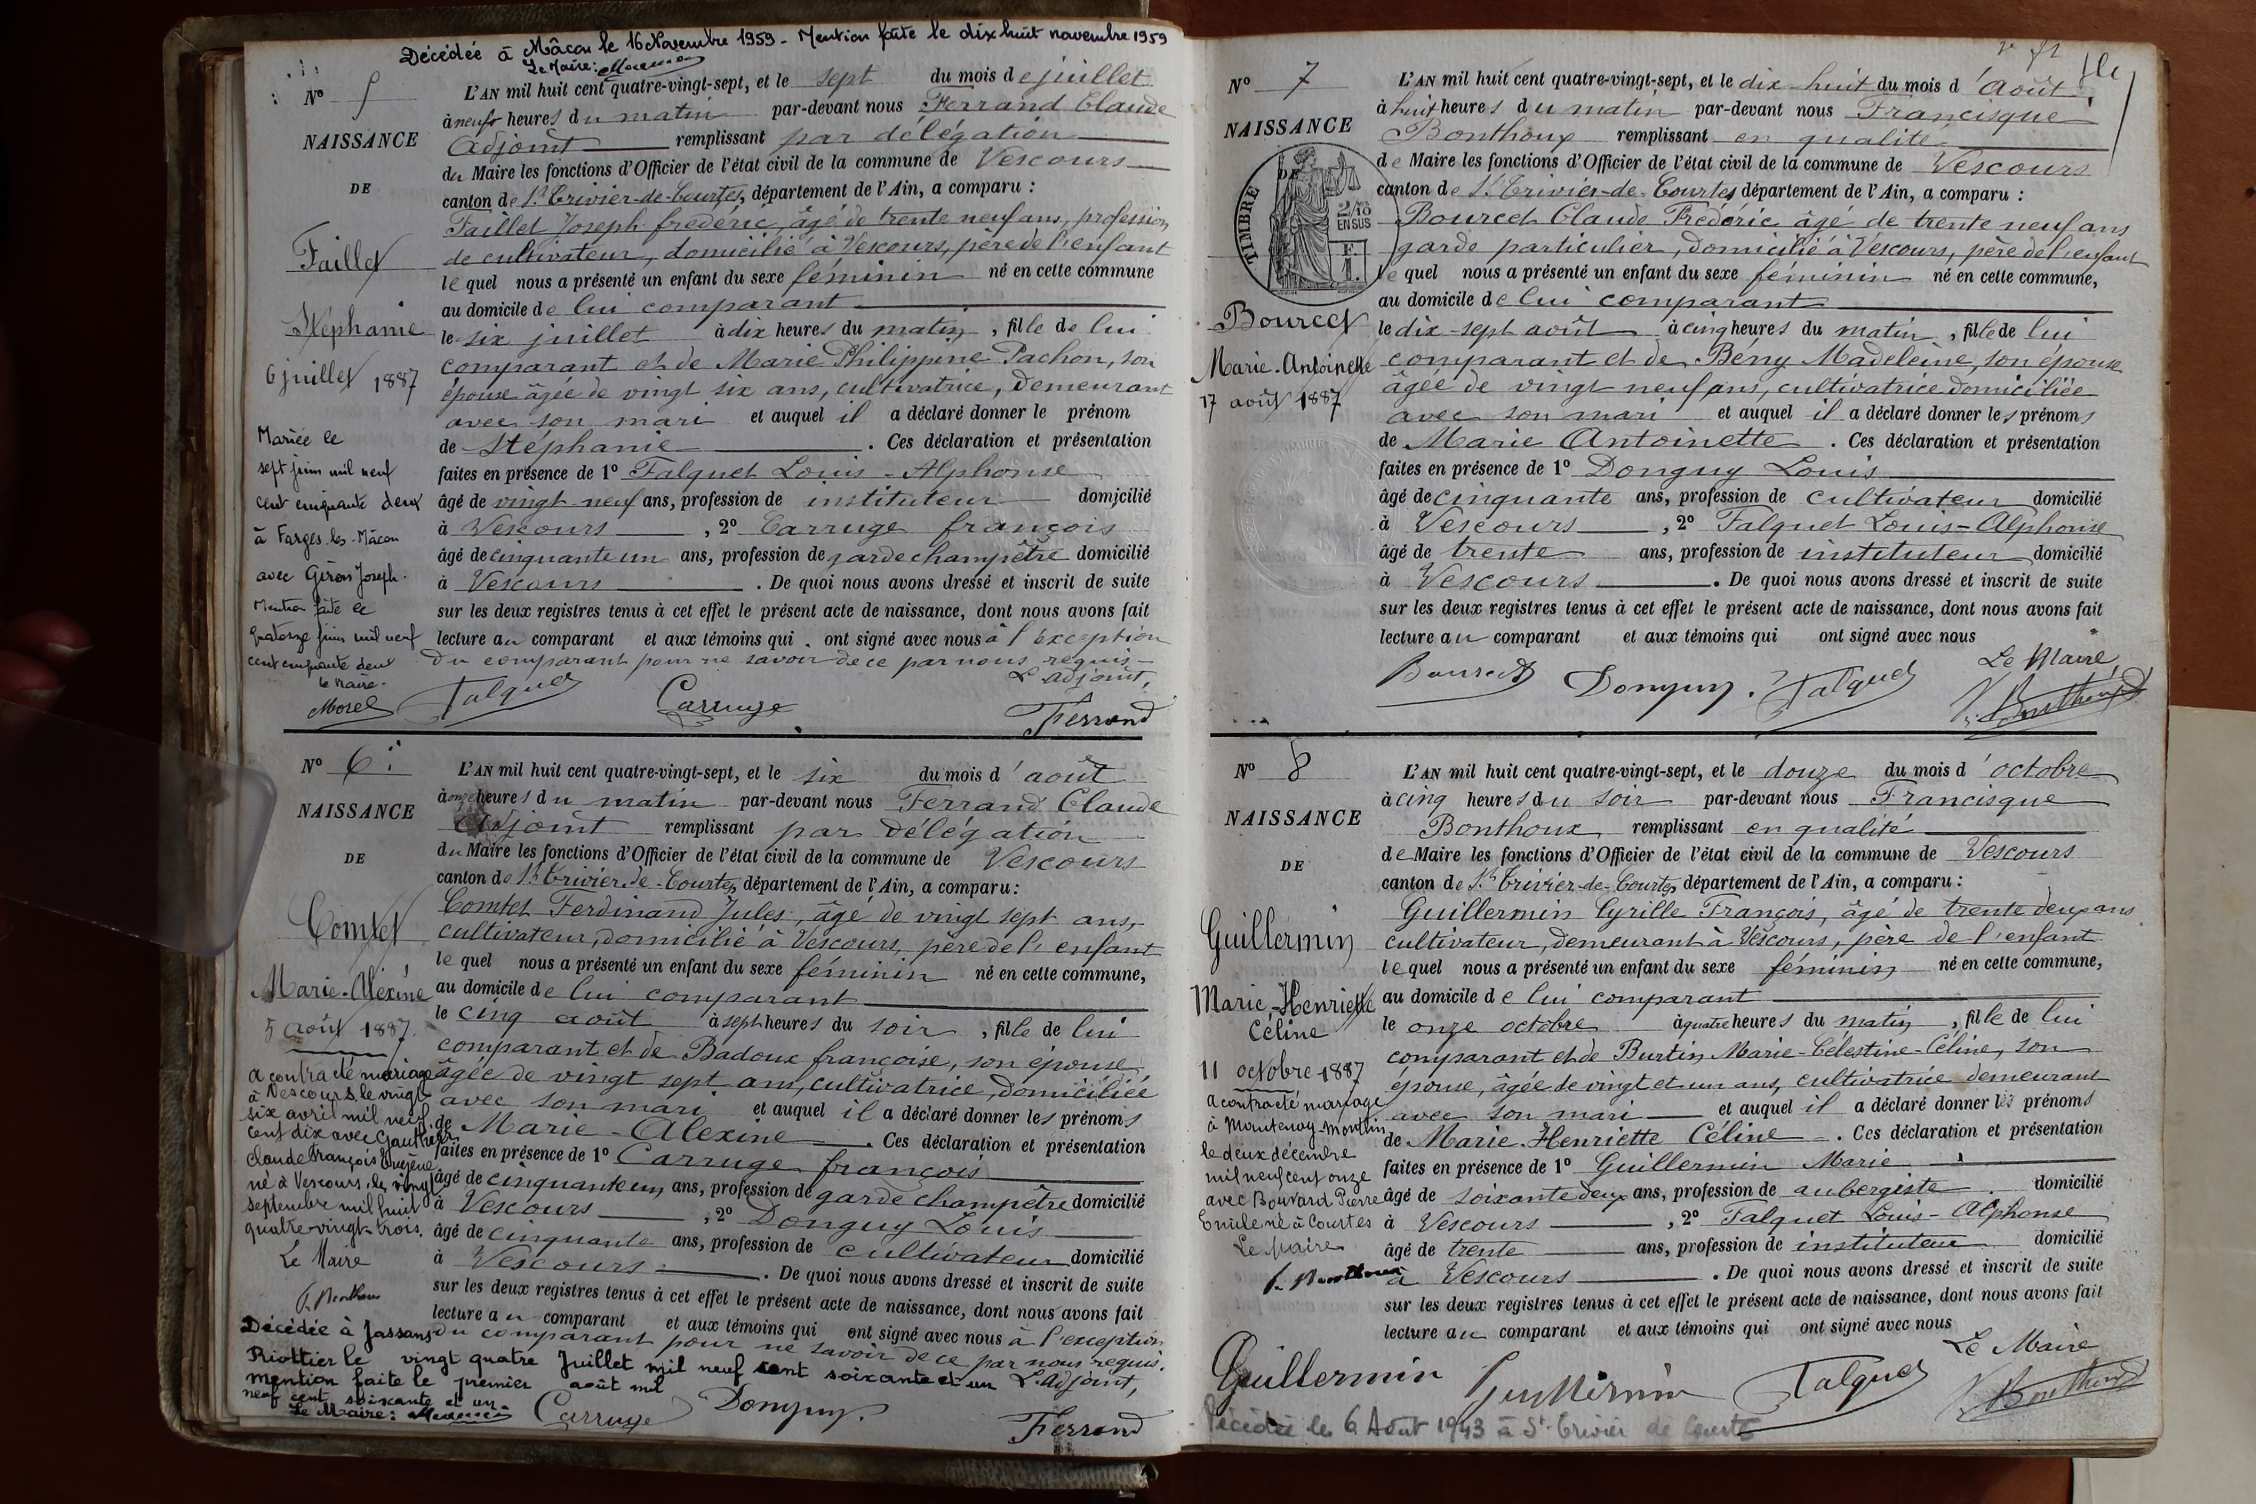 Décédée à Mâcon le 16 Novembre 1959 - Mention faite le dix huit novembre 1959
Le Maire:
N° 5
NAISSANCE
DE
Faillet
Stéphanie
6 juillet 1887
Mariée le
sept juin mil neuf
cent cinquante deux
à Farges-les-Mâcon
avec Géron Joseph.
Mention faite le
quatorze juin mil neuf
cent cinquante deux
Le Maire.
Morel
L'AN mil huit cent quatre-vingt-sept, et le sept du mois de juillet
à neuf heures du matin par-devant nous Ferrand Claude
Adjoint remplissant par délégation
du Maire les fonctions d'Officier de l'état civil de la commune de Vescours
canton de St Trivier-de-Courtes, département de l'Ain, a comparu :
Faillet Joseph frédéric, âgé de trente neuf ans, profession
de cultivateur, domicilié à Vescours, père de l'enfant
lequel nous a présenté un enfant du sexe féminin né en cette commune
au domicile de lui comparant
le six juillet à dix heures du matin, fille de lui
comparant et de Marie Philippine Pachon, son
épouse âgée de vingt six ans, cultivatrice, demeurant
avec son mari et auquel il a déclaré donner le prénom
de Stéphanie. Ces déclaration et présentation
faites en présence de 1° Falquet Louis-Alphonse
âgé de vingt neuf ans, profession de instituteur domicilié
à Vescours, 2° Carruge françois
âgé de cinquante un ans, profession de garde champêtre domicilié
à Vescours. De quoi nous avons dressé et inscrit de suite
sur les deux registres tenus à cet effet le présent acte de naissance, dont nous avons fait
lecture au comparant et aux témoins qui ont signé avec nous à l'exception
du comparant pour ne savoir de ce par nous requis
L'adjoint,
Falquet Carruge Ferrand
N° 6
NAISSANCE
DE
Comtet
Marie-Alexine
5 août 1887
a contracté mariage
à Vescours le vingt
six avril mil neuf
cent dix avec Gauthier
Claude François Eugène
né à Vescours le vingt
septembre mil huit
quatre-vingt-trois.
Le Maire
F. Bonthoux
L'AN mil huit cent quatre-vingt-sept, et le six du mois d'août
à onze heures du matin par-devant nous Ferrand Claude
Adjoint remplissant par délégation
du Maire les fonctions d'Officier de l'état civil de la commune de Vescours
canton de St Trivier-de-Courtes, département de l'Ain, a comparu :
Comtet Ferdinand Jules, âgé de vingt sept ans,
cultivateur, domicilié à Vescours, père de l'enfant
lequel nous a présenté un enfant du sexe féminin né en cette commune,
au domicile de lui comparant
le cinq août à sept heures du soir, fille de lui
comparant et de Badoux françoise, son épouse
âgée de vingt sept ans, cultivatrice, domiciliée
avec son mari et auquel il a déclaré donner les prénoms
de Marie-Alexine. Ces déclaration et présentation
faites en présence de 1° Carruge françois
âgé de cinquante un ans, profession de garde champêtre domicilié
à Vescours, 2° Donguy Louis
âgé de cinquante ans, profession de cultivateur domicilié
à Vescours. De quoi nous avons dressé et inscrit de suite
sur les deux registres tenus à cet effet le présent acte de naissance, dont nous avons fait
lecture au comparant et aux témoins qui ont signé avec nous à l'exception
du comparant pour ne savoir de ce par nous requis.
L'adjoint,
Décédée à Jassans
Riottier le vingt quatre Juillet mil neuf cent soixante et un
mention faite le premier août mil
neuf cent soixante et un
Le Maire:
Carruge Donguy Ferrand
N° 7
NAISSANCE
DE
TIMBRE
2/10
EN SUS
F.
1.
Bourcet
Marie-Antoinette
17 août 1887
L'AN mil huit cent quatre-vingt-sept, et le dix-huit du mois d'Août
à huit heures du matin par-devant nous Francisque
Bonthoux remplissant en qualité
de Maire les fonctions d'Officier de l'état civil de la commune de Vescours
canton de St Trivier-de-Courtes département de l'Ain, a comparu :
Bourcet Claude Frédéric âgé de trente neuf ans
garde particulier, domicilié à Vescours, père de l'enfant
lequel nous a présenté un enfant du sexe féminin né en cette commune,
au domicile de lui comparant
le dix-sept août à cinq heures du matin, fille de lui
comparant et de Bény Madeleine, son épouse
âgée de vingt neuf ans, cultivatrice domiciliée
avec son mari et auquel il a déclaré donner les prénoms
de Marie Antoinette. Ces déclaration et présentation
faites en présence de 1° Donguy Louis
âgé de cinquante ans, profession de cultivateur domicilié
à Vescours, 2° Falquet Louis-Alphonse
âgé de trente ans, profession de instituteur domicilié
à Vescours. De quoi nous avons dressé et inscrit de suite
sur les deux registres tenus à cet effet le présent acte de naissance, dont nous avons fait
lecture au comparant et aux témoins qui ont signé avec nous
Le Maire,
Bourcet Donguy. Falquet F. Bonthoux
N° 8
NAISSANCE
DE
Guillermin
Marie-Henriette
Céline
11 octobre 1887
a contracté mariage
à Mantenay-Montlin
le deux décembre
mil neuf cent onze
avec Bouvard Pierre
Emile né à Courtes
Le Maire
F. Bonthoux
L'AN mil huit cent quatre-vingt-sept, et le douze du mois d'octobre
à cinq heures du soir par-devant nous Francisque
Bonthoux remplissant en qualité
de Maire les fonctions d'Officier de l'état civil de la commune de Vescours
canton de St Trivier-de-Courtes, département de l'Ain, a comparu :
Guillermin Cyrille François, âgé de trente deux ans
cultivateur, demeurant à Vescours, père de l'enfant
lequel nous a présenté un enfant du sexe féminin né en cette commune,
au domicile de lui comparant
le onze octobre à quatre heures du matin, fille de lui
comparant et de Burtin Marie-Célestine-Céline, son
épouse, âgée de vingt et un ans, cultivatrice demeurant
avec son mari et auquel il a déclaré donner les prénoms
de Marie-Henriette Céline. Ces déclaration et présentation
faites en présence de 1° Guillermin Marie
âgé de soixante deux ans, profession de aubergiste domicilié
à Vescours, 2° Falquet Louis-Alphonse
âgé de trente ans, profession de instituteur domicilié
à Vescours. De quoi nous avons dressé et inscrit de suite
sur les deux registres tenus à cet effet le présent acte de naissance, dont nous avons fait
lecture au comparant et aux témoins qui ont signé avec nous
Le Maire
Guillermin Guillermin Falquet F. Bonthoux
Décédée le 6 Août 1943 à St-Trivier de Courtes